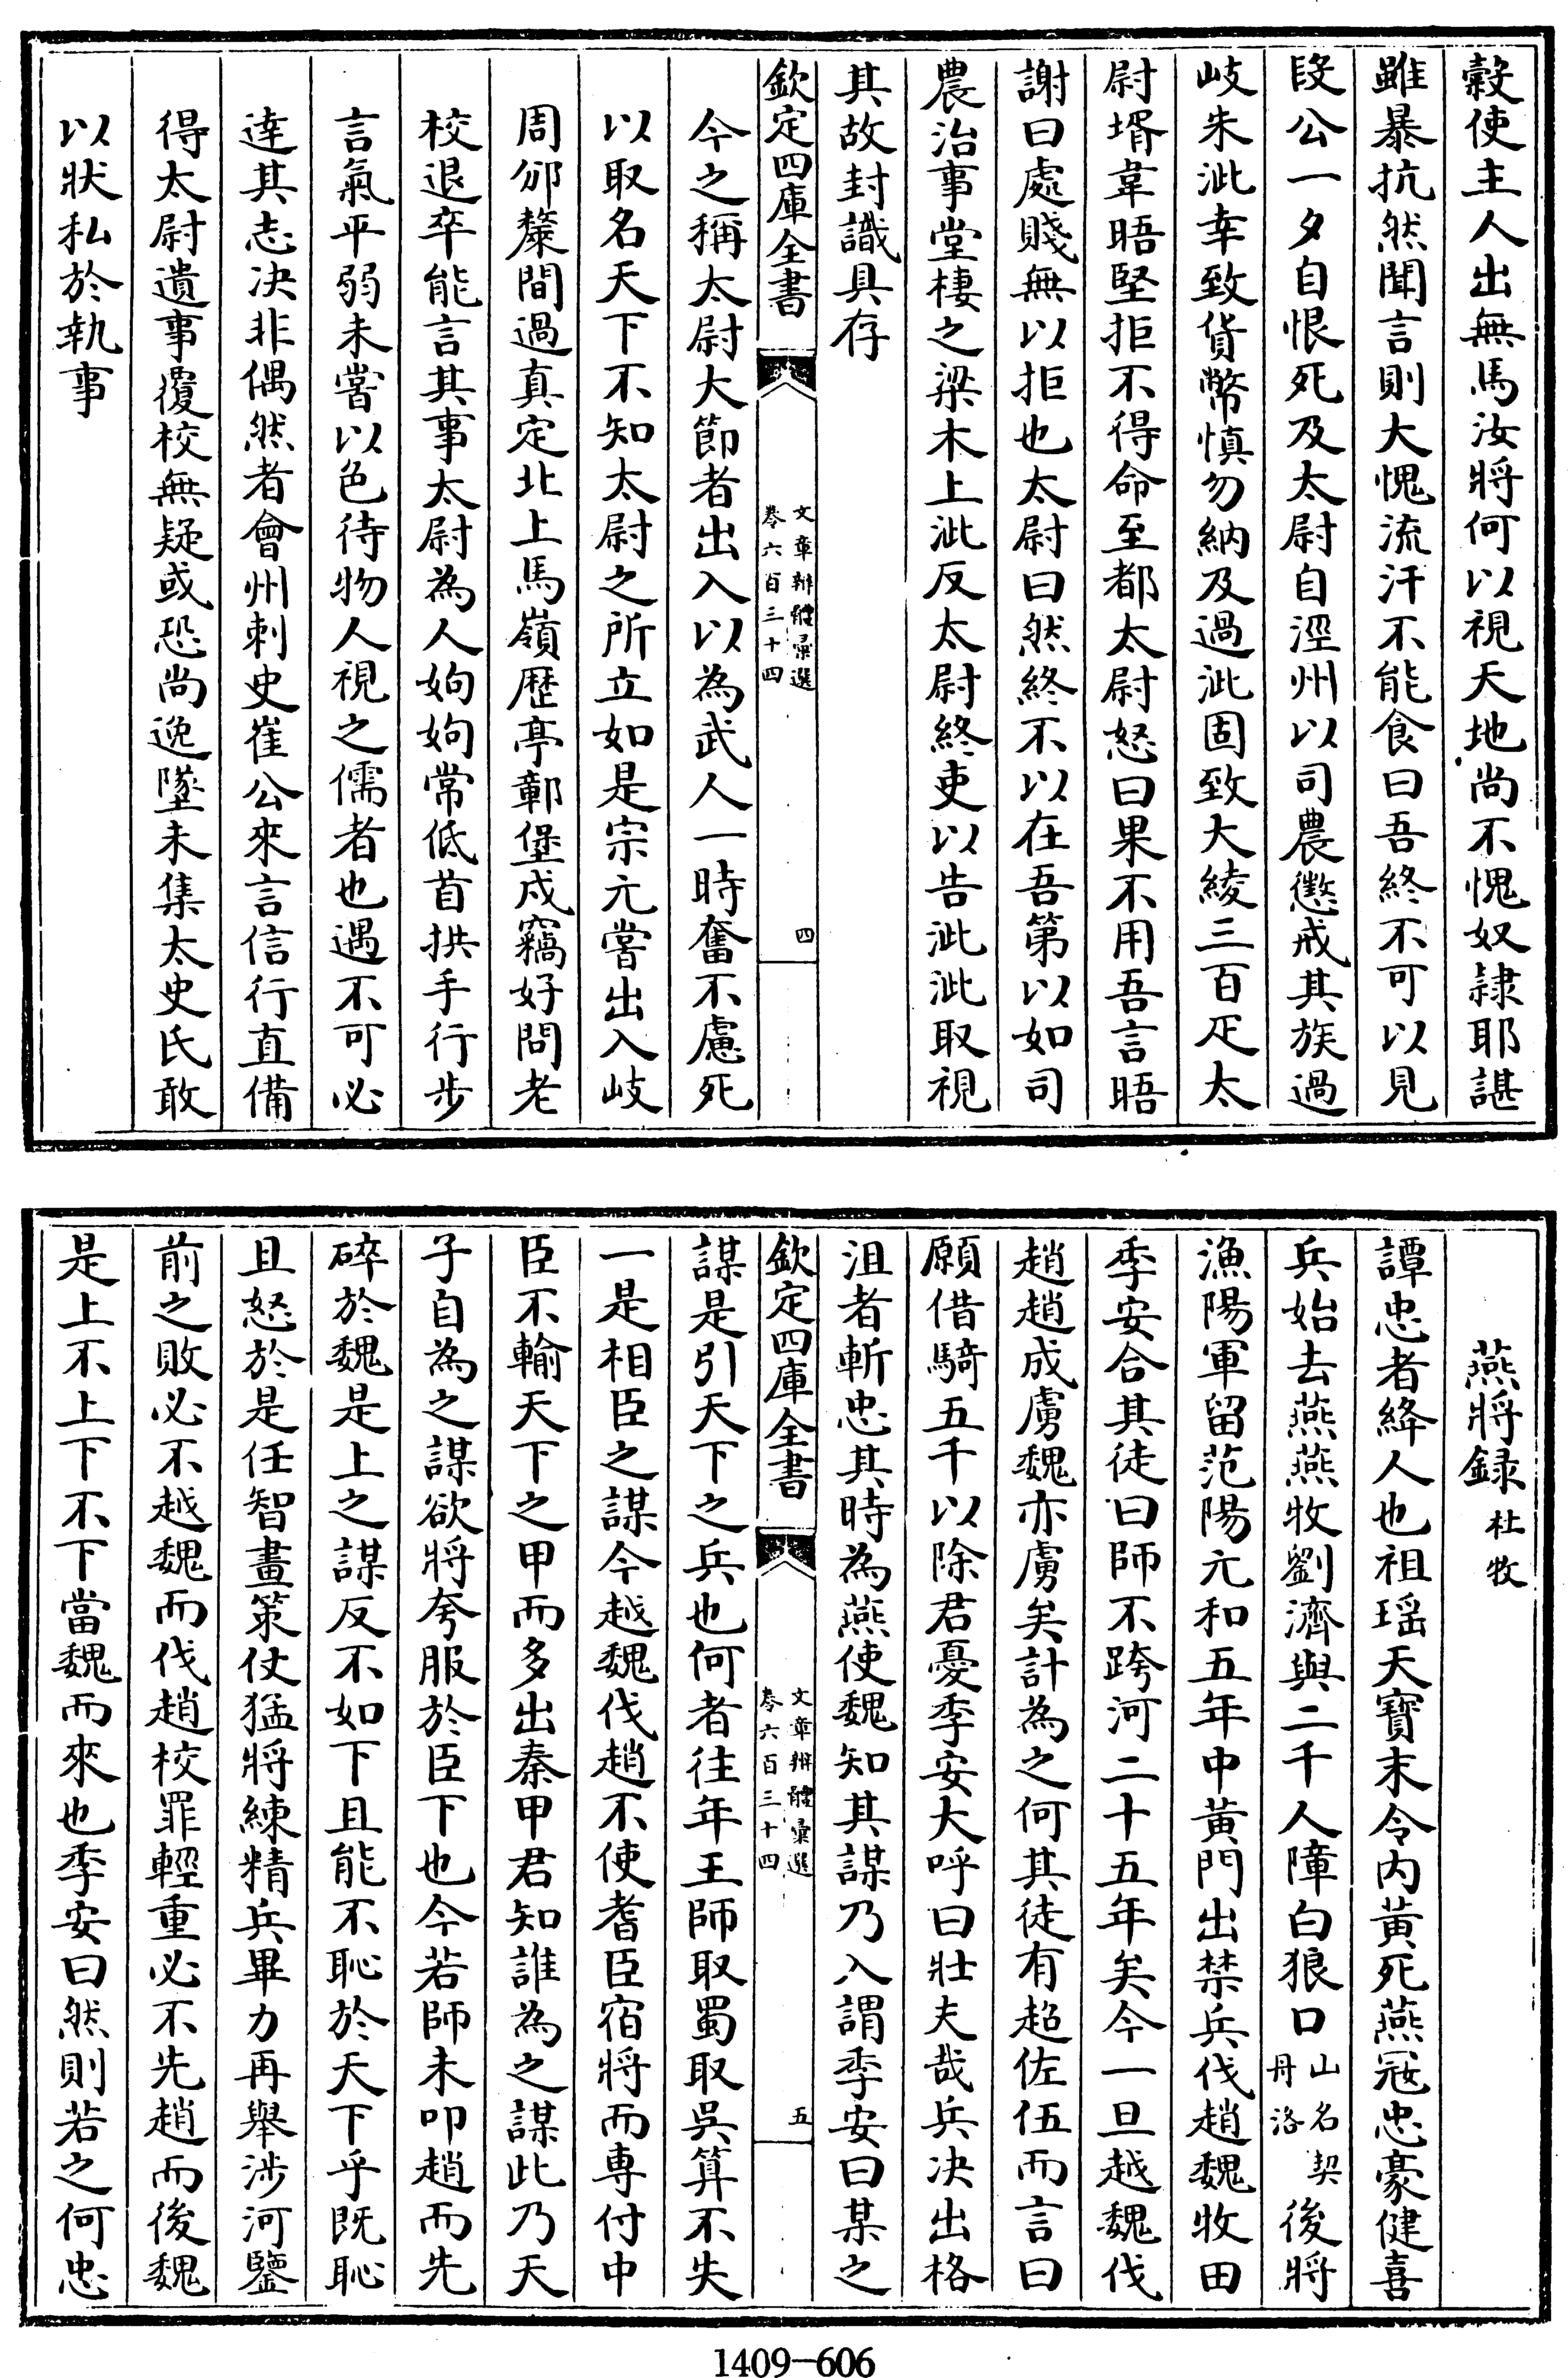 糓使主人出無馬汝將何以視天地尚不愧奴隷耶諶
雖暴抗然聞言則大愧流汗不能食曰吾終不可以見
段公一夕自恨死及太尉自涇州以司農懲戒其族過
岐朱泚幸致貨幣慎勿納及過泚固致大綾三百疋太
尉壻韋晤堅拒不得命至都太尉怒曰果不用吾言晤
謝曰處賤無以拒也太尉曰然終不以在吾第以如司
農治事堂棲之梁木上泚反太尉終吏以告泚泚取視
其故封識具存
欽定四庫全書
文章辨體彙選
卷六百三十四
四
今之稱太尉大節者出入以為武人一時奮不慮死
以取名天下不知太尉之所立如是宗元嘗出入岐
周邠斄間過真定北上馬嶺歴亭鄣堡戍竊好問老
校退卒能言其事太尉為人姁姁常低首拱手行步
言氣平弱未嘗以色待物人視之儒者也遇不可必
逹其志決非偶然者會州刺史崔公來言信行直備
得太尉遺事覆校無疑或恐尚逸墜未集太史氏敢
以狀私於執事
燕將録 杜牧
譚忠者絳人也祖瑶天寳末令内黄死燕冦忠豪健喜
兵始去燕燕牧劉濟與二千人障白狼口 山名契丹洛 後將
漁陽軍留范陽元和五年中黄門出禁兵伐趙魏牧田
季安合其徒曰師不跨河二十五年矣今一旦越魏伐
趙趙成虜魏亦虜矣計為之何其徒有超佐伍而言曰
願借騎五千以除君憂季安大呼曰壯夫哉兵决出格
沮者斬忠其時為燕使魏知其謀乃入謂季安曰某之
欽定四庫全書
文章辨體彙選
卷六百三十四
五
謀是引天下之兵也何者往年王師取蜀取吳算不失
一是相臣之謀今越魏伐趙不使耆臣宿將而專付中
臣不輸天下之甲而多出秦甲君知誰為之謀此乃天
子自為之謀欲將夸服於臣下也今若師未叩趙而先
碎於魏是上之謀反不如下且能不恥於天下乎既恥
且怒於是任智畫策仗猛將練精兵畢力再舉涉河鑒
前之敗必不越魏而伐趙校罪輕重必不先趙而後魏
是上不上下不下當魏而來也季安曰然則若之何忠
1409—606